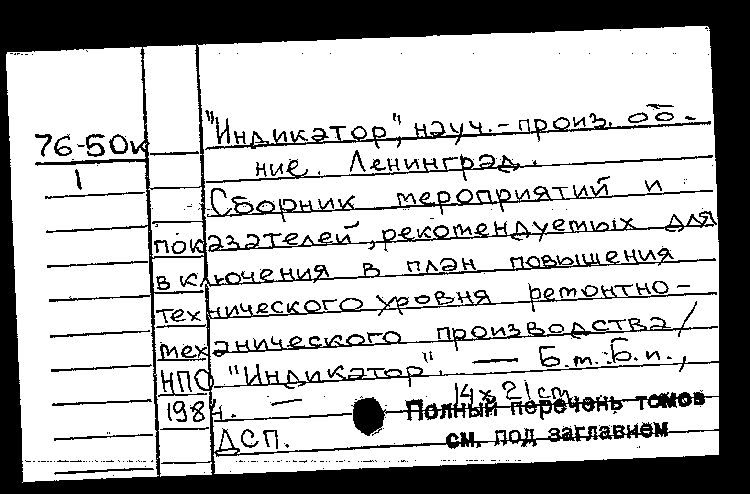 76-50к
1
"Индикатор", науч.-произ. об-
ние. Ленинград.
Сборник мероприятий и
показателей, рекомендуемых для
включения в план повышения
технического уровня ремонтно-
механического производства/
НПО "Индикатор". — Б.м.: Б.и.,
1984. — 14х21 cm
Полный перечень томов
ДСП.
см. под заглавием